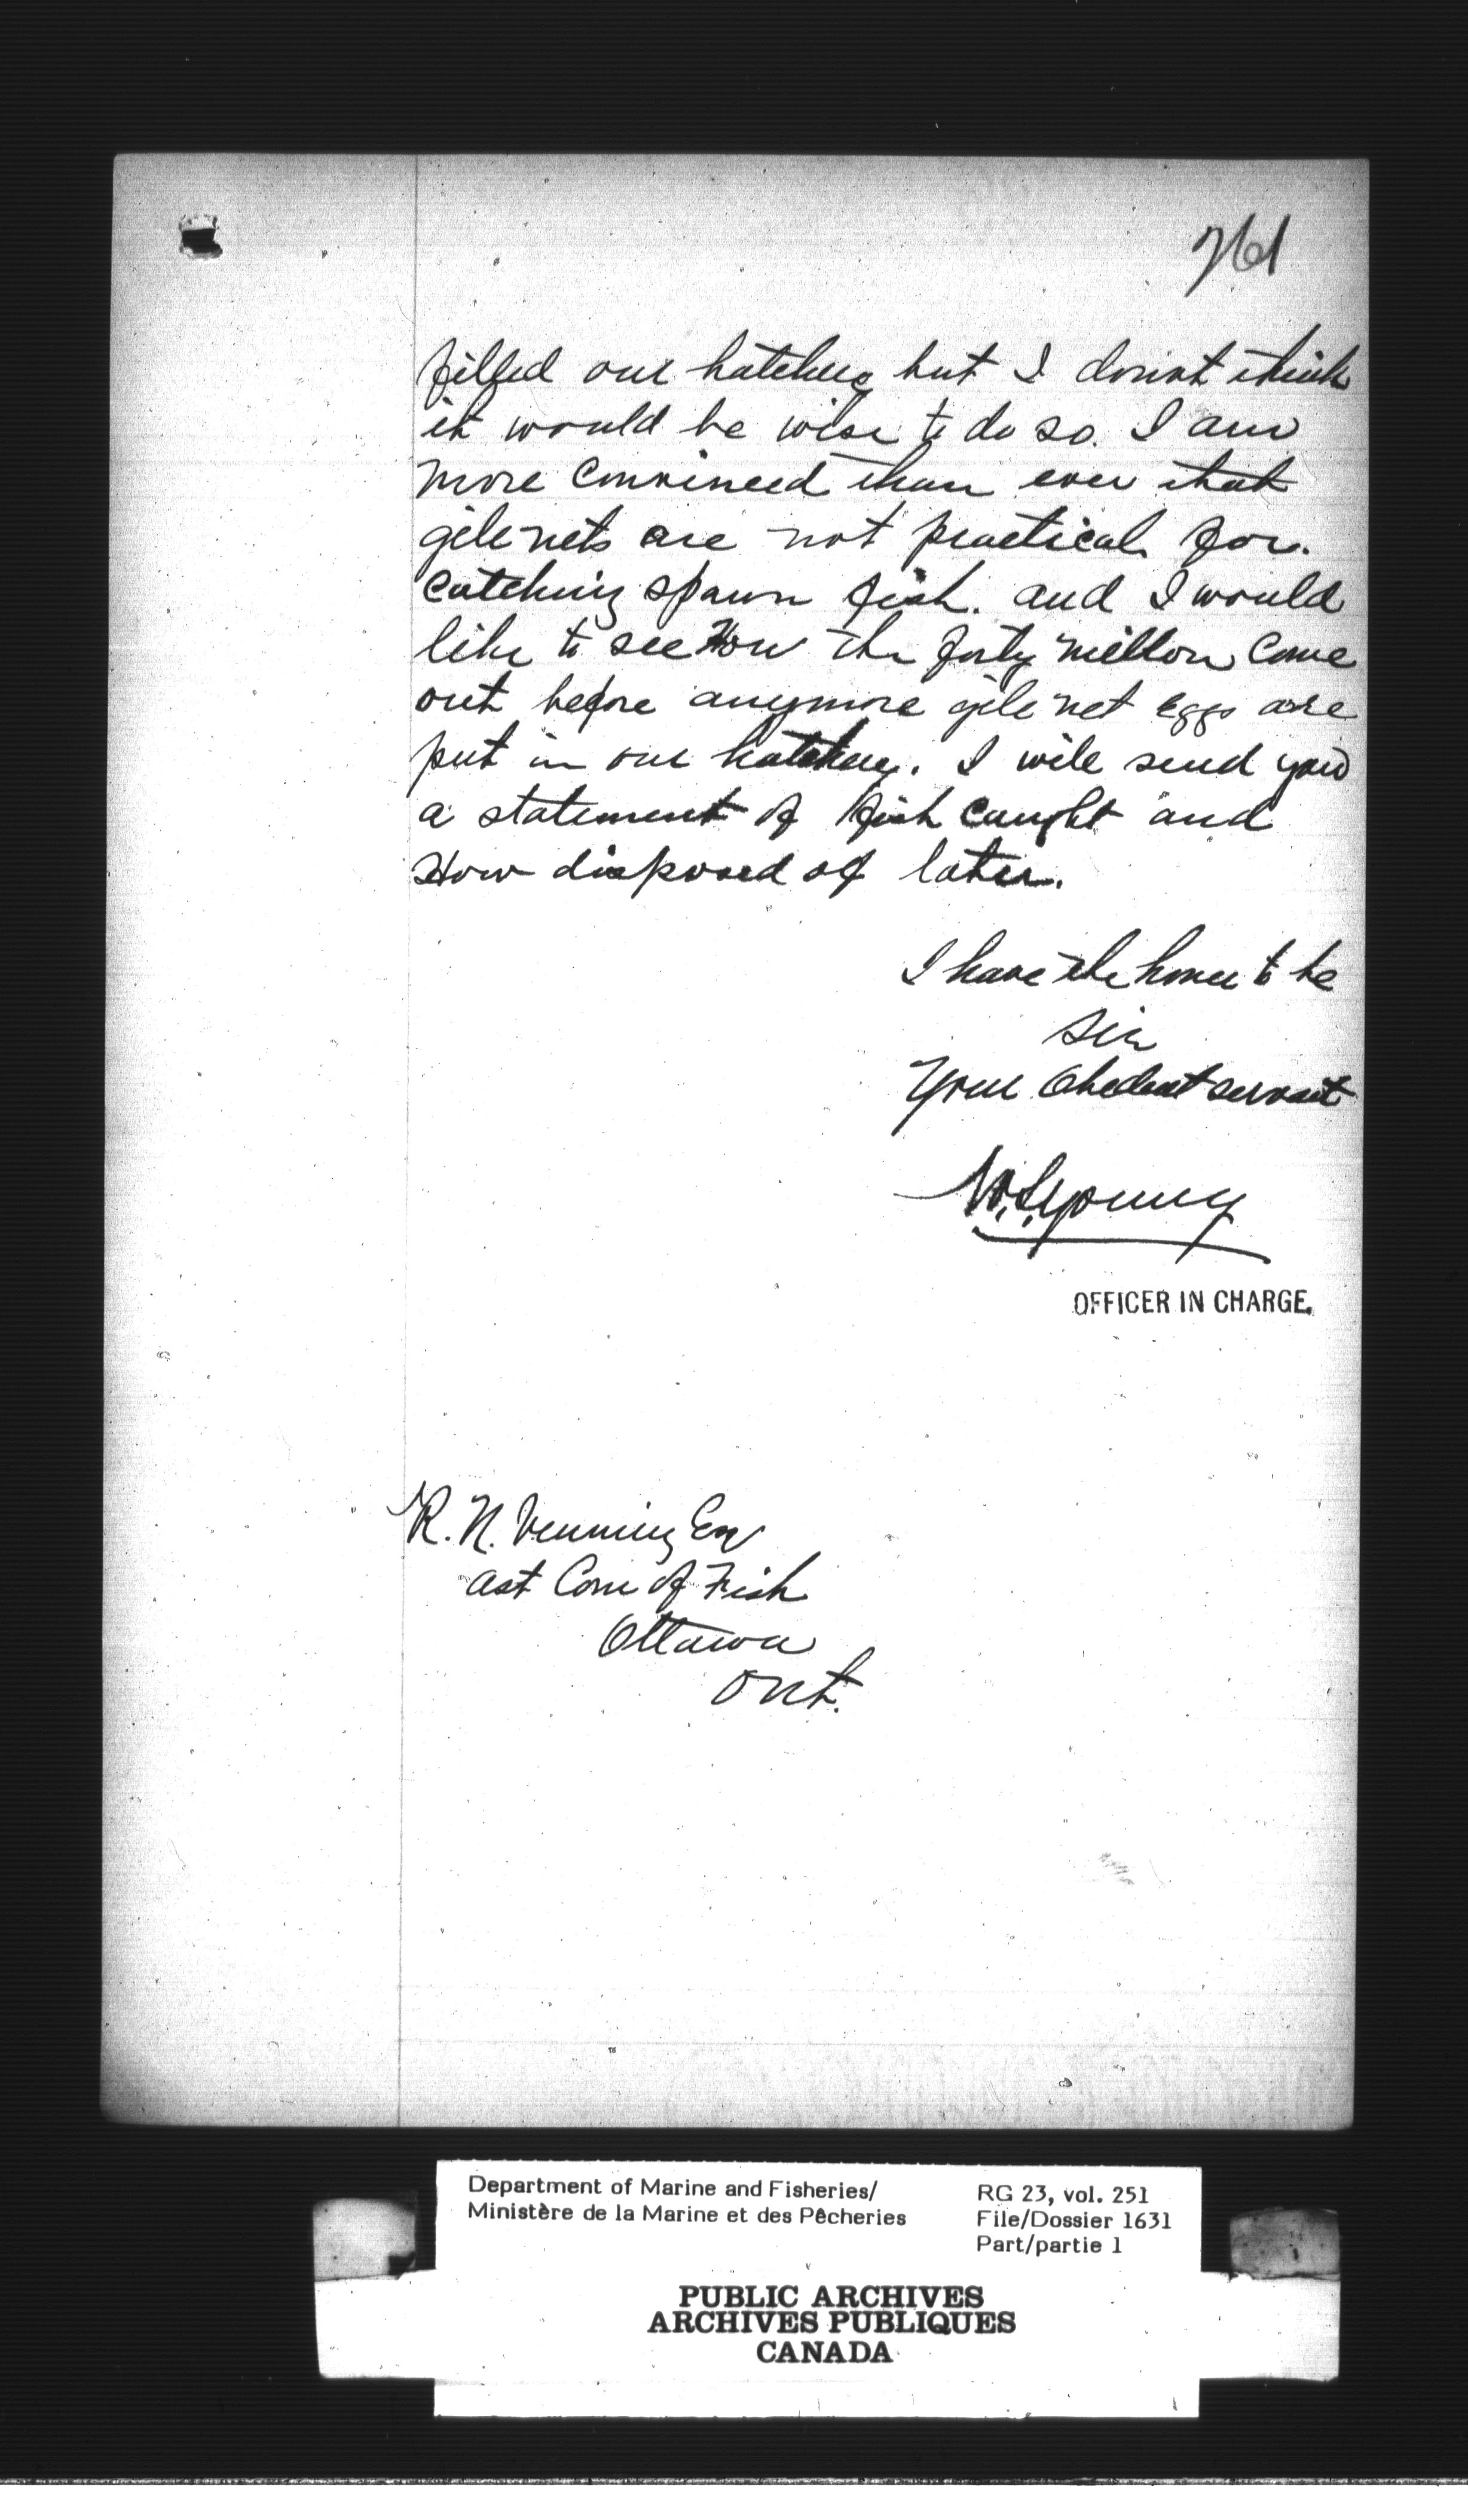 761
filled our hatchery but I donnt think
it would be wise to do so. I am
more convinced than ever that
gill nets are not practical for.
catching spawn fish. and I would
like to see How the forty million come
out before anymore gill net eggs are
put in our hatchery. I will send you
a statement of fish caught and
How disposed of later.
I have the honor to be
Sir
Your Obedent servant
Wm. Young
OFFICER IN CHARGE.
R. N. Venning Esq
Ast Com of Fish
Ottawa
Ont.
Department of Marine and Fisheries/
Ministère de la Marine et des Pêcheries
RG 23, vol. 251
File/Dossier 1631
Part/partie 1
PUBLIC ARCHIVES
ARCHIVES PUBLIQUES
CANADA